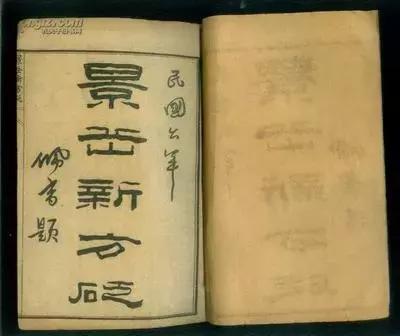 民國六年
景岳新方砭
題